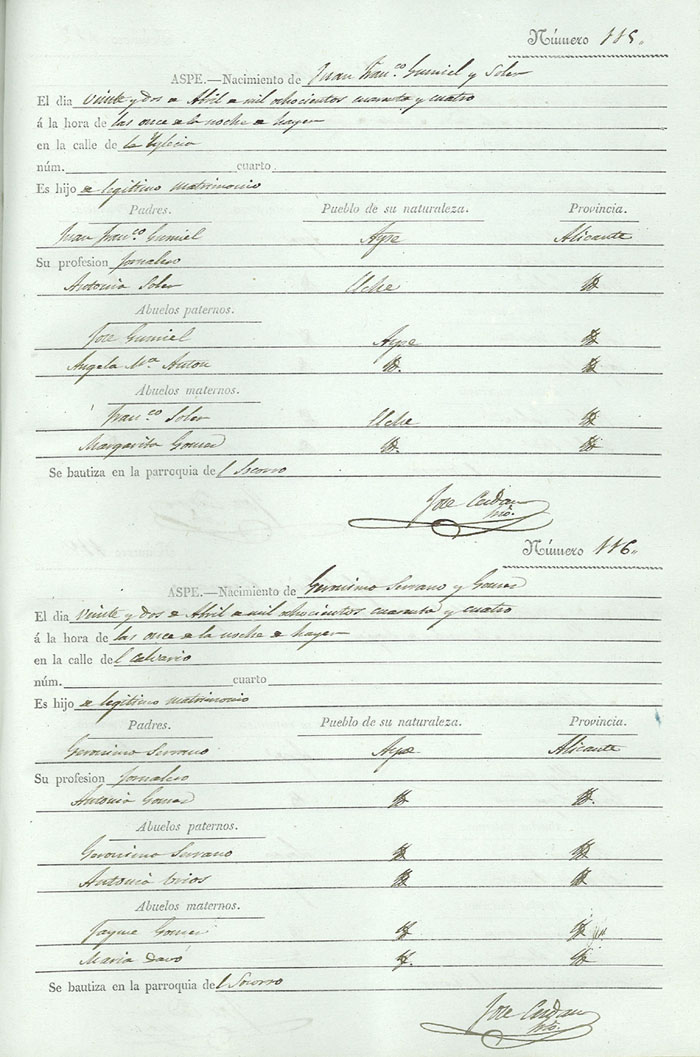 Número 115.
ASPE.—Nacimiento de Juan Franco. Gumiel y Soler
El dia veinte y dos de Abril de mil ochocientos cuarenta y cuatro
á la hora de las once de la noche de hayer
en la calle de la Yglecia
núm. cuarto.
Es hijo de legitimo matrimonio
Padres. Pueblo de su naturaleza. Provincia.
Juan Franco. Gumiel Aspe Alicante
Su profesion Jornalero
Antonia Soler Elche
Abuelos paternos.
Jose Gumiel Aspe
Angela Ma. Anton
Abuelos maternos.
Franco. Soler Elche
Margarita Gomes
Se bautiza en la parroquia del Socorro
Jose Cerdan
Número 116.
ASPE.—Nacimiento de Geronimo Serrano y Gomes
El dia veinte y dos de Abril de mil ochocientos cuarenta y cuatro
á la hora de las once de la noche de hayer
en la calle del Calvario
núm. cuarto
Es hijo de legitimo matrimonio
Padres. Pueblo de su naturaleza. Provincia.
Geronimo Serrano Aspe Alicante
Su profesion Jornalero
Antonia Gomes
Abuelos paternos.
Geronimo Serrano
Antonia
Abuelos maternos.
Jayme Gomes
Maria Davó
Se bautiza en la parroquia del Socorro
Jose Cerdan